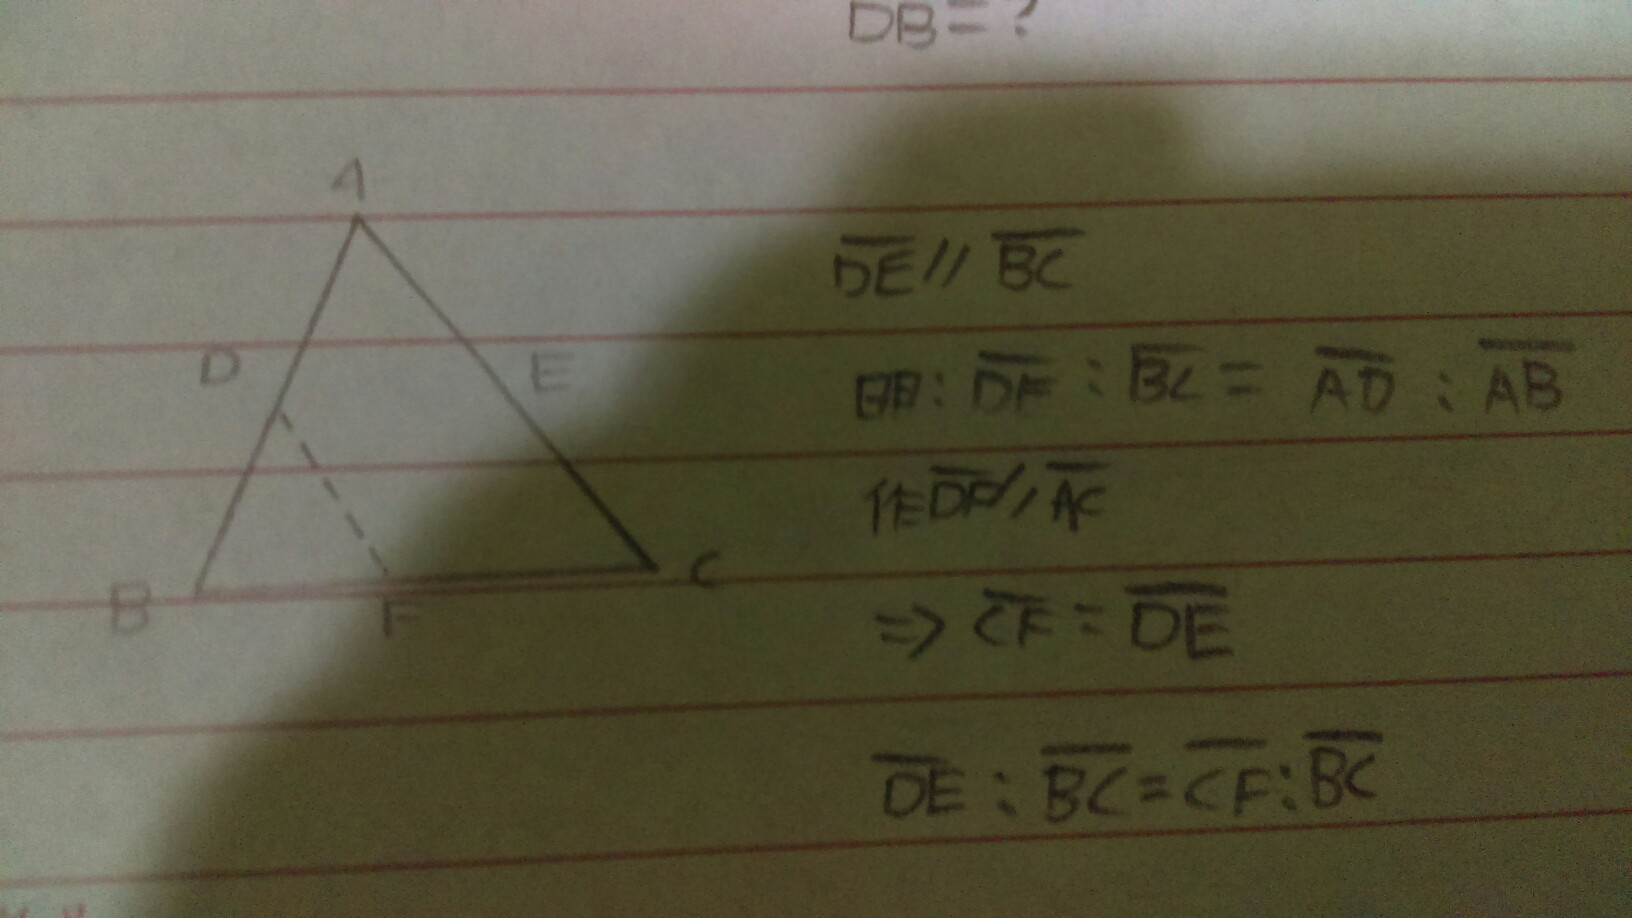 DB=?
A
DE // BC
D
E
明: DE : BC = AD : AB
作DF // AC
B
F
C
⇒ CF = DE
DE : BC = CF : BC